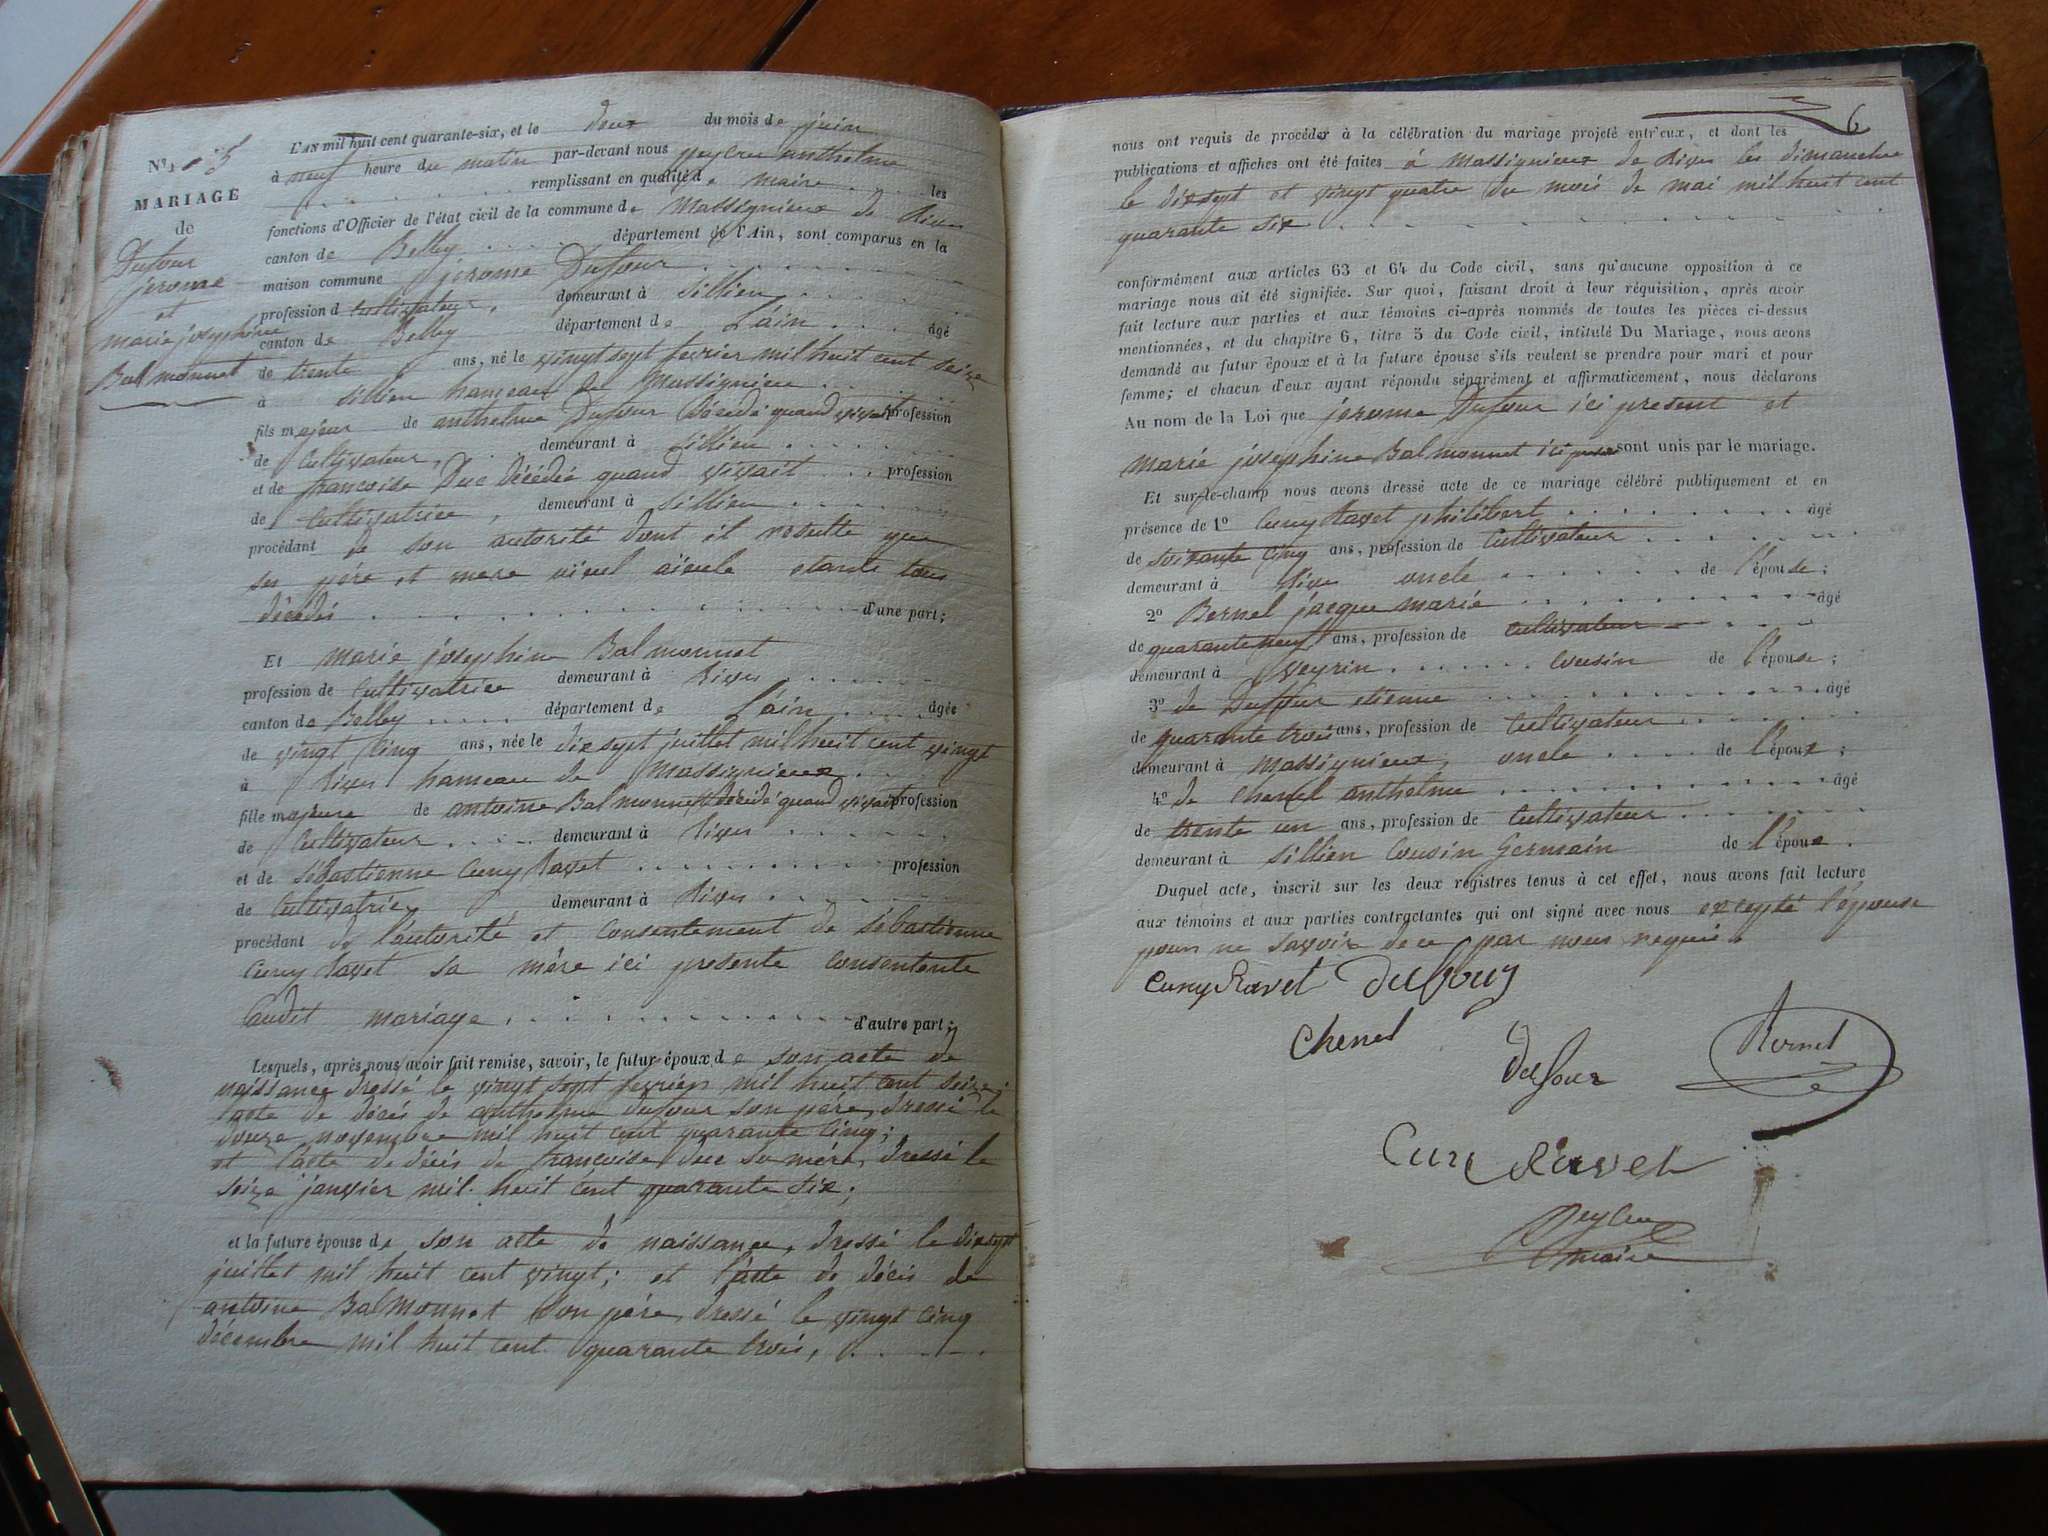 N.º 5
MARIAGE
de
Dufour
jerome
et
marie josephine
Balmonnet
L'AN mil huit cent quarante-six, et le deux du mois de juin
à neuf heure du matin par-devant nous peycru anthelme
remplissant en qualité de maire les
fonctions d'Officier de l'état civil de la commune de Massignieux de Rives
canton de Belley département de l'Ain, sont comparus en la
maison commune jerome Dufour
profession d cultivateur, demeurant à sillien
canton de Belley département de L'ain âgé
de trente ans, né le vingt sept fevrier mil huit cent seize
à sillien hameau de Massignieu
fils majeur de anthelme Dufour Décédé quand vivait profession
de Cultivateur, demeurant à sillien
et de francoise Duc Décédée quand vivait profession
de Cultivatrice, demeurant à sillien
procédant de son autorité dont il resulte que
ses père et mere aïeul aïeule etante tous
décédés d'une part;
Et marie josephine Balmonnet
profession de Cultivatrice demeurant à Rives
canton de Belley département de L'ain âgée
de vingt Cinq ans, née le dix sept juillet mil huit cent vingt
à Rives hameau de Massignieux
fille majeure de antoine Balmonnet décédé quand vivait profession
de Cultivateur demeurant à Rives
et de sébastienne Cuny Ravet profession
de Cultivatrice demeurant à Rives
procédant de l'autorité et Consentement de sébastienne
Cuny Ravet sa mère ici presente Consentente
Audit mariage d'autre part;
Lesquels, après nous avoir fait remise, savoir, le futur époux de son acte de
naissance dressé le vingt sept fevrier mil huit cent seize;
l'acte de décés de anthelme dufour son père, dressé le
douze novembre mil huit cent quarante Cinq;
et l'acte de décés de francoise Duc sa mère, dressé le
seize janvier mil huit cent quarante six;
et la future épouse de son acte de naissance, dressé le dix sept
juillet mil huit cent vingt; et l'acte de décés de
antoine Balmonnet son père, dressé le vingt Cinq
décembre mil huit cent quarante trois,
6
nous ont requis de procéder à la célébration du mariage projeté entr'eux, et dont les
publications et affiches ont été faites à Massignieux de Rives les dimanche
le dix sept et vingt quatre du mois de mai mil huit cent
quarante six
conformément aux articles 63 et 64 du Code civil, sans qu'aucune opposition à ce
mariage nous ait été signifiée. Sur quoi, faisant droit à leur réquisition, après avoir
fait lecture aux parties et aux témoins ci-après nommés de toutes les pièces ci-dessus
mentionnées, et du chapitre 6, titre 5 du Code civil, intitulé Du Mariage, nous avons
demandé au futur époux et à la future épouse s'ils veulent se prendre pour mari et pour
femme; et chacun d'eux ayant répondu séparément et affirmativement, nous déclarons
Au nom de la Loi que jerome Dufour ici present et
Marie josephine Balmonnet ici sont unis par le mariage.
Et sur-le-champ nous avons dressé acte de ce mariage célébré publiquement et en
présence de 1º Cuny Ravet philibert âgé
de soixante Cinq ans, profession de Cultivateur
demeurant à Rives oncle de l'épouse;
2º Bernel jacque marie âgé
de quarante neuf ans, profession de cultivateur
demeurant à veyrin Cousin de l'épouse;
3º de Dufour etienne âgé
de quarante trois ans, profession de Cultivateur
demeurant à Massignieux, oncle de l'époux;
4º de Chenel anthelme âgé
de trente un ans, profession de Cultivateur
demeurant à sillien Cousin Germain de l'époux.
Duquel acte, inscrit sur les deux registres tenus à cet effet, nous avons fait lecture
aux témoins et aux parties contractantes qui ont signé avec nous excepté l'épouse
pour ne savoir de ce par nous requise.
Cuny Ravet Dufour
Chenel
Dufour
Bernel
Cuny Ravet
Peycru
maire